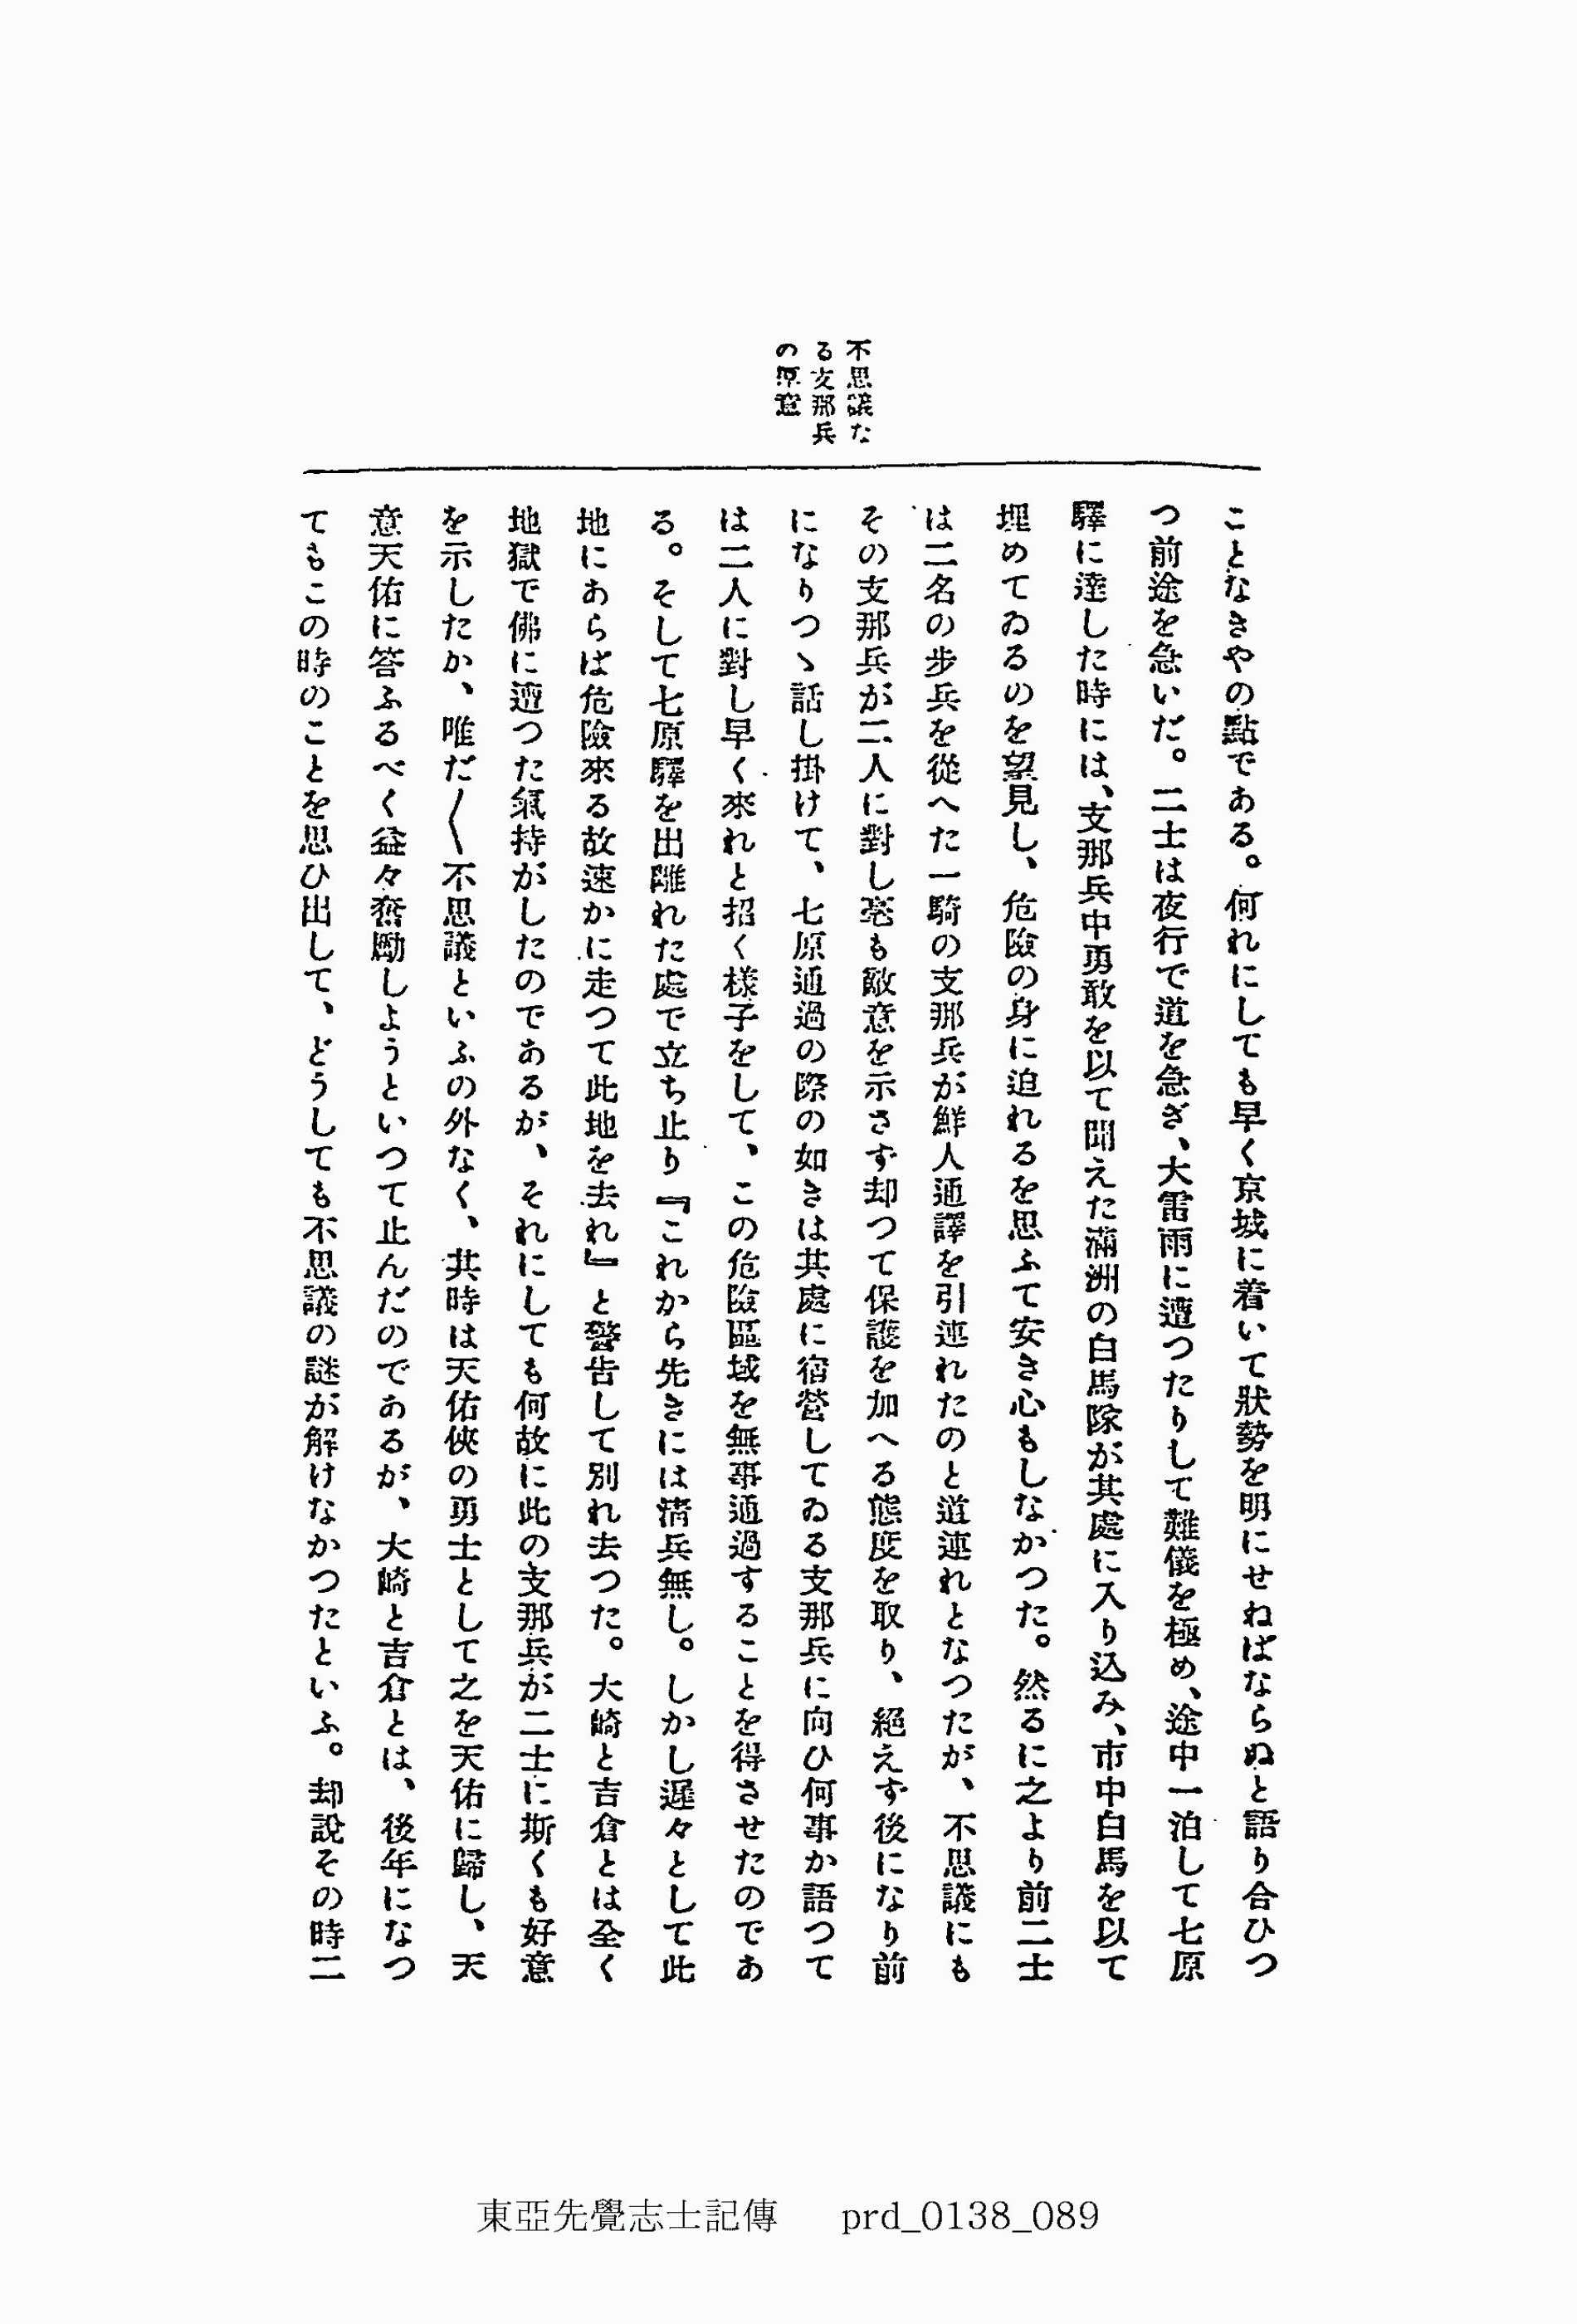 不思議な
る支那兵
の厚意
ことなきやの點である。何れにしても早く京城に着いて狀勢を明にせねばならぬと語り合ひつ
つ前途を急いだ。二士は夜行で道を急ぎ、大雷雨に遭つたりして難儀を極め、途中一泊して七原
驛に達した時には、支那兵中勇敢を以て聞えた滿洲の白馬隊が其處に入り込み、市中白馬を以て
埋めてゐるのを望見し、危險の身に迫れるを思ふて安き心もしなかつた。然るに之より前二士
は二名の步兵を從へた一騎の支那兵が鮮人通譯を引連れたのと道連れとなつたが、不思議にも
その支那兵が二人に對し毫も敵意を示さず却つて保護を加へる態度を取り、絕えず後になり前
になりつゝ話し掛けて、七原通過の際の如きは其處に宿營してゐる支那兵に向ひ何事か語つて
は二人に對し早く來れと招く樣子をして、この危險區域を無事通過することを得させたのであ
る。そして七原驛を出離れた處で立ち止り『これから先きには淸兵無し。しかし遲々として此
地にあらば危險來る故速かに走つて此地を去れ』と警告して別れ去つた。大崎と吉倉とは全く
地獄で佛に遭つた氣持がしたのであるが、それにしても何故に此の支那兵が二士に斯くも好意
を示したか、唯だ〱不思議といふの外なく、其時は天佑俠の勇士として之を天佑に歸し、天
意天佑に答ふるべく益々奮勵しようといつて止んだのであるが、大崎と吉倉とは、後年になつ
てもこの時のことを思ひ出して、どうしても不思議の謎が解けなかつたといふ。却說その時二
東亞先覺志士記傳 prd_0138_089